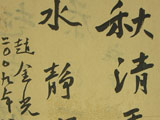 秋清
水静
赵金光
二〇〇九年